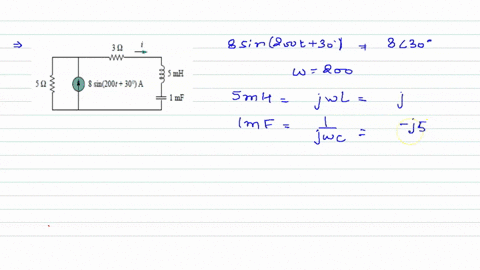 ⇒
3 Ω
i
5 Ω
8 sin(200t + 30°) A
5 mH
1 mF
8 sin(200t+30°) = 8∠30°
ω = 200
5mH = jωL = j
1mF = 1/jωc = -j5